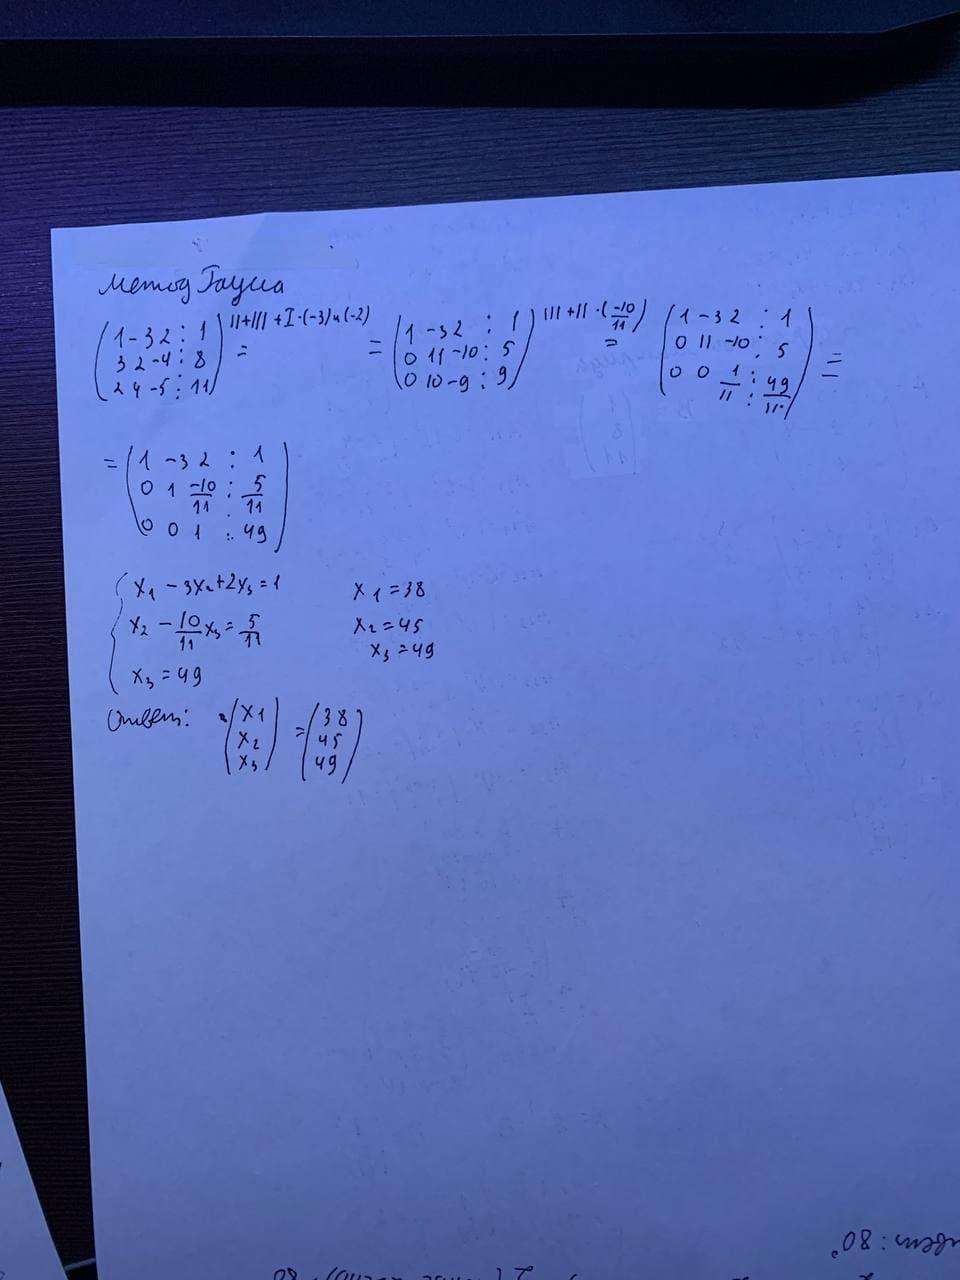 Метод Гаусса
(1 -3 2 : 1 / 3 2 -4 : 8 / 2 4 -5 : 11) II+III+I·(-3)и(-2) = = (1 -3 2 : 1 / 0 11 -10 : 5 / 0 10 -9 : 9) III+II·(-10/11) = (1 -3 2 : 1 / 0 11 -10 : 5 / 0 0 1/11 : 49/11) =
= (1 -3 2 : 1 / 0 1 -10/11 : 5/11 / 0 0 1 : 49)
x1 - 3x2 + 2x3 = 1 x1 = 38
x2 - 10/11 x3 = 5/11 x2 = 45
x3 = 49 x3 = 49
Ответ: (x1 / x2 / x3) = (38 / 45 / 49)
: 80°